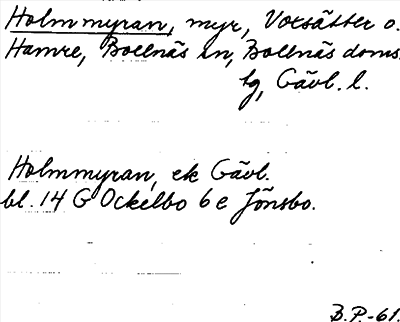 Holmmyran, myr, Voxsätter o.
Hamre, Bollnäs sn, Bollnäs doms.
tg, Gävl. l.
Holmmyran, ek Gävl.
bl. 14 G Ockelbo 6 e Jönsbo.
B.P.-61.